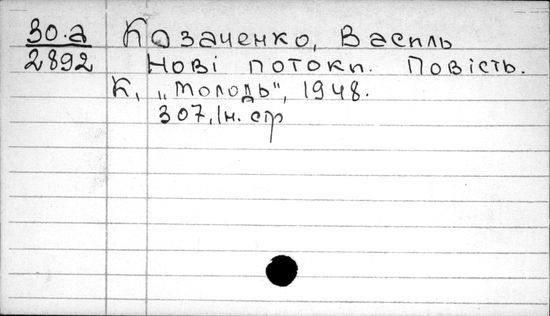 30.а Козаченко, Василь
2892 Нові потоки. Повість.
К, „Молодь", 1948.
307, Iн. стр